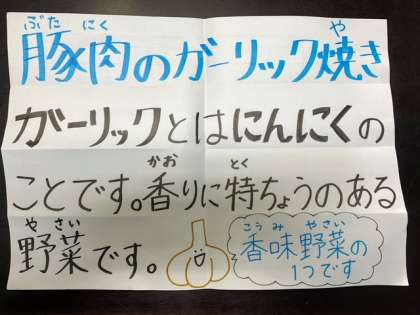 ぶた にく や
豚肉のガーリック焼き
ガーリックとはにんにくの
かお とく
ことです。香りに特ちょうのある
やさい
野菜です。
こうみ やさい
香味野菜の
1つです